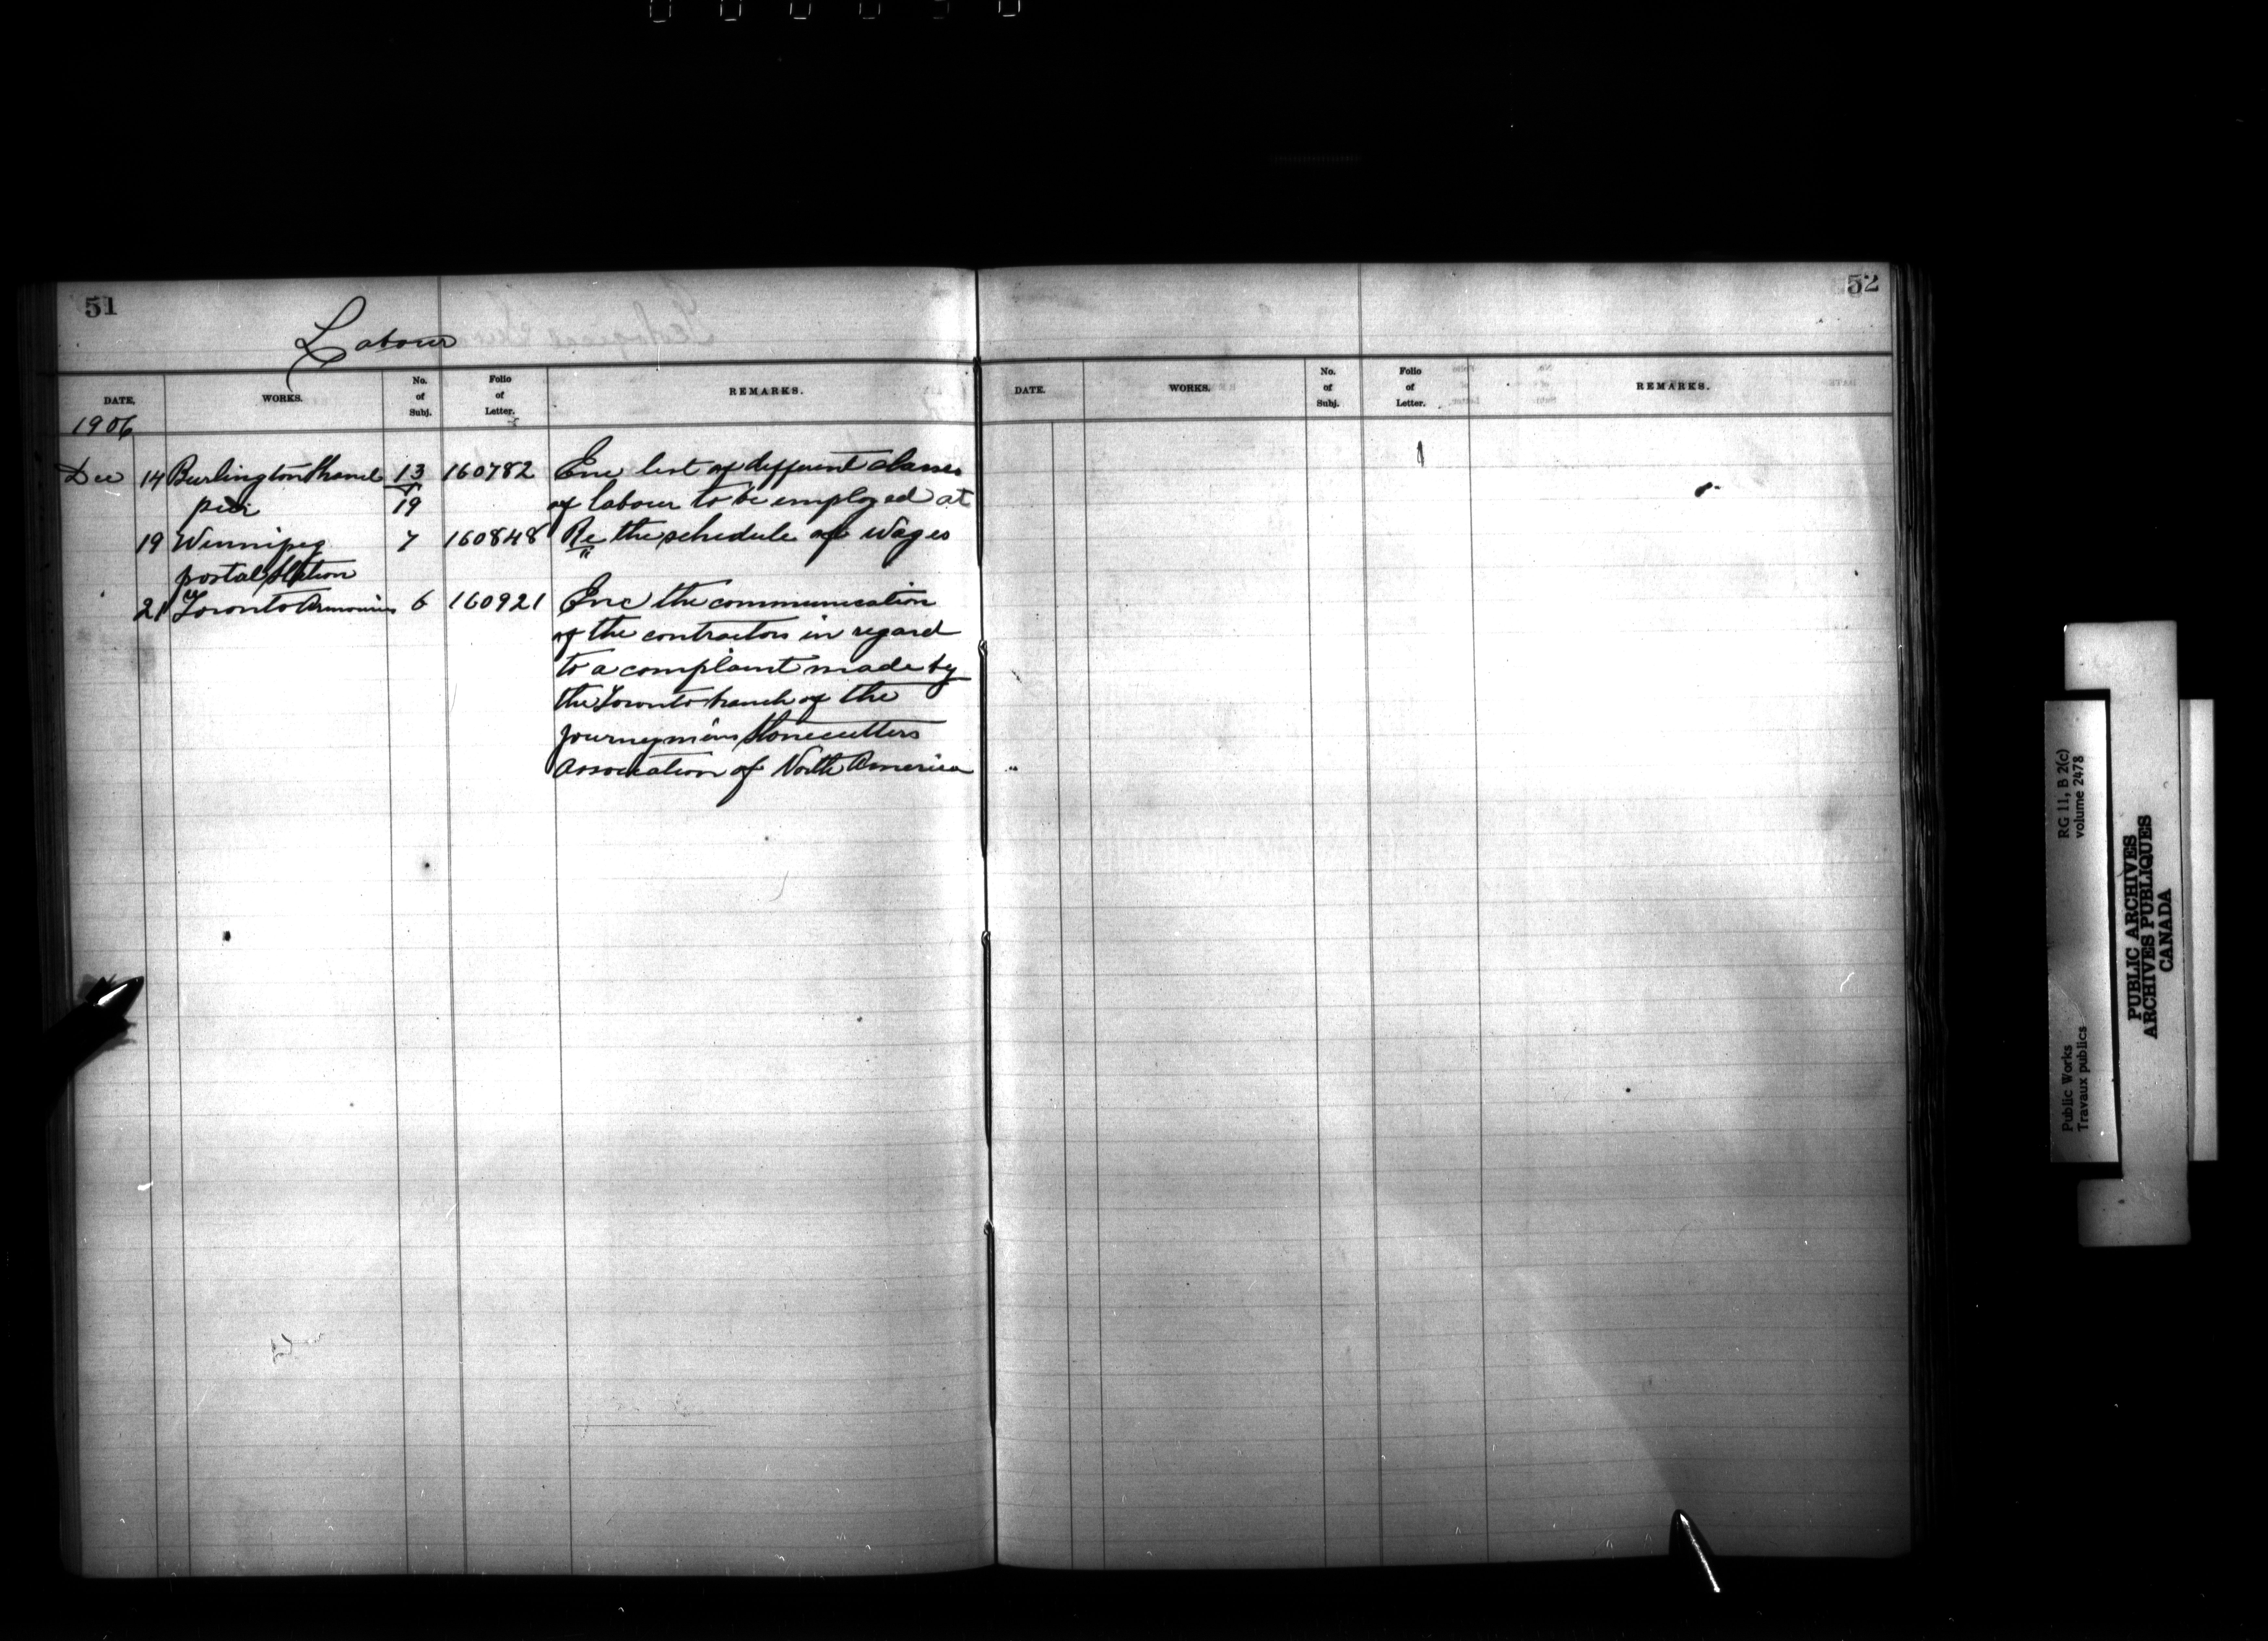 51
Labour
DATE. WORKS. No. of Subj. Folio of Letter. REMARKS.
1906
Dec 14 Burlington Channel 13 160782 Enc list of different classes
pier 19 of labour to be employed at
19 Winnipeg 7 160848 Re the schedule of wages
postal Station "
21 Toronto Armouries 6 160921 Enc the communication
of the contractors in regard
to a complaint made by
the Toronto branch of the
Journeymens Stonecutters
Association of North America
52
DATE. WORKS. No. of Subj. Folio of Letter. REMARKS.
Public Works
Travaux publics
RG 11, B 2(c)
volume 2478
PUBLIC ARCHIVES
ARCHIVES PUBLIQUES
CANADA